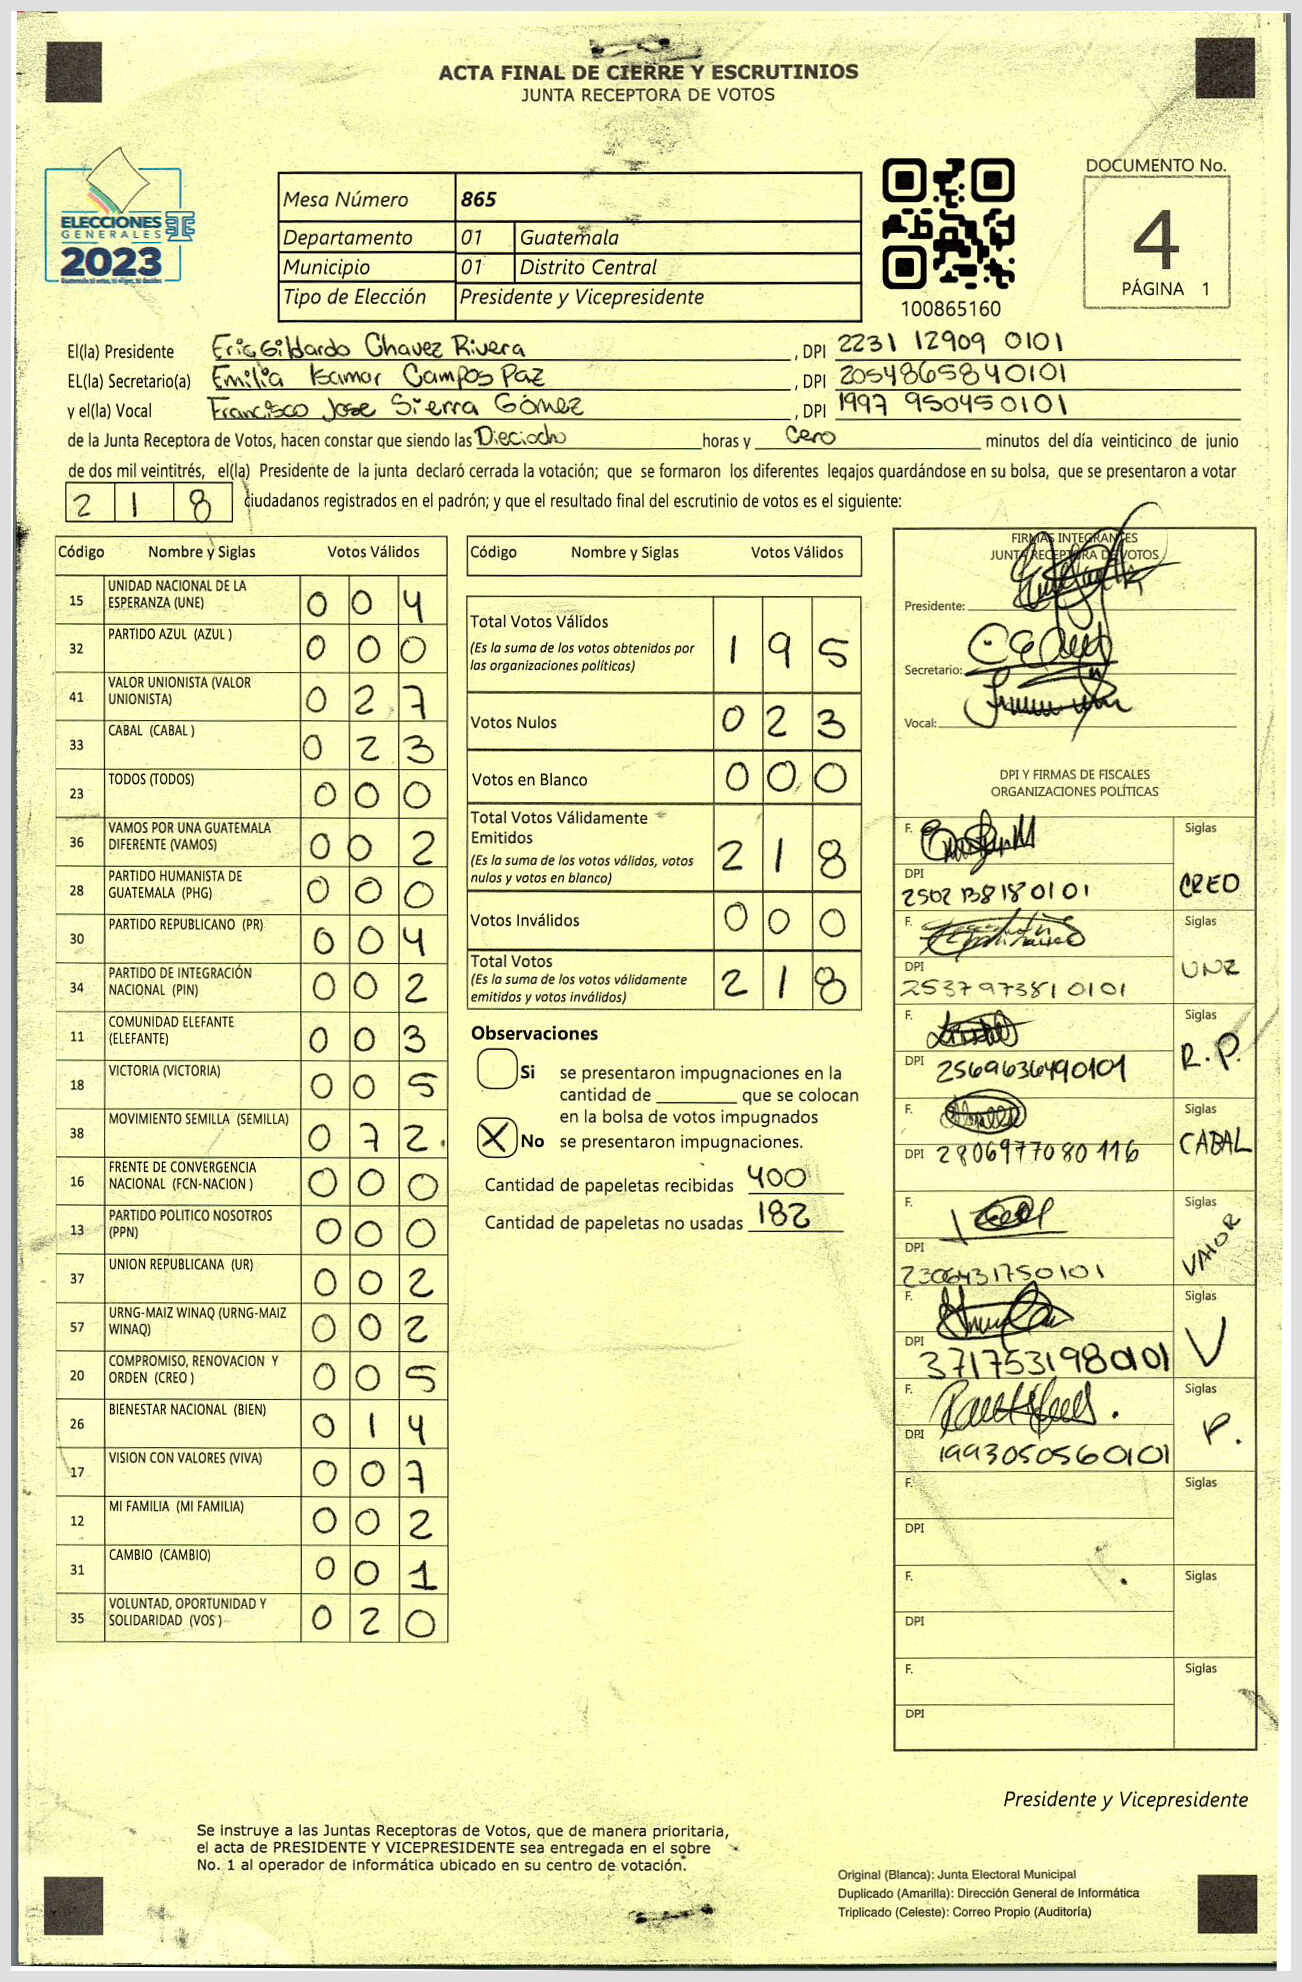 ACTA FINAL DE CIERRE Y ESCRUTINIOS
JUNTA RECEPTORA DE VOTOS
ELECCIONES
GENERALES
2023
Mesa Número 865
Departamento 01 Guatemala
Municipio 01 Distrito Central
Tipo de Elección Presidente y Vicepresidente
100865160
DOCUMENTO No.
4
PÁGINA 1
El(la) Presidente Eric Gildardo Chavez Rivera , DPI 2231 12909 0101
EL(la) Secretario(a) Emilia Isamar Campos Paz , DPI 2054865840101
y el(la) Vocal Francisco Jose Sierra Gómez , DPI 1997 950450101
de la Junta Receptora de Votos, hacen constar que siendo las Dieciocho horas y Cero minutos del día veinticinco de junio
de dos mil veintitrés, el(la) Presidente de la junta declaró cerrada la votación; que se formaron los diferentes legajos guardándose en su bolsa, que se presentaron a votar
218 ciudadanos registrados en el padrón; y que el resultado final del escrutinio de votos es el siguiente:
Código Nombre y Siglas Votos Válidos
15 UNIDAD NACIONAL DE LA ESPERANZA (UNE) 0 0 4
32 PARTIDO AZUL (AZUL ) 0 0 0
41 VALOR UNIONISTA (VALOR UNIONISTA) 0 2 7
33 CABAL (CABAL ) 0 2 3
23 TODOS (TODOS) 0 0 0
36 VAMOS POR UNA GUATEMALA DIFERENTE (VAMOS) 0 0 2
28 PARTIDO HUMANISTA DE GUATEMALA (PHG) 0 0 0
30 PARTIDO REPUBLICANO (PR) 0 0 4
34 PARTIDO DE INTEGRACIÓN NACIONAL (PIN) 0 0 2
11 COMUNIDAD ELEFANTE (ELEFANTE) 0 0 3
18 VICTORIA (VICTORIA) 0 0 5
38 MOVIMIENTO SEMILLA (SEMILLA) 0 7 2
16 FRENTE DE CONVERGENCIA NACIONAL (FCN-NACION ) 0 0 0
13 PARTIDO POLITICO NOSOTROS (PPN) 0 0 0
37 UNION REPUBLICANA (UR) 0 0 2
57 URNG-MAIZ WINAQ (URNG-MAIZ WINAQ) 0 0 2
20 COMPROMISO, RENOVACION Y ORDEN (CREO ) 0 0 5
26 BIENESTAR NACIONAL (BIEN) 0 1 4
17 VISION CON VALORES (VIVA) 0 0 7
12 MI FAMILIA (MI FAMILIA) 0 0 2
31 CAMBIO (CAMBIO) 0 0 1
35 VOLUNTAD, OPORTUNIDAD Y SOLIDARIDAD (VOS ) 0 2 0
Código Nombre y Siglas Votos Válidos
Total Votos Válidos 1 9 5
(Es la suma de los votos obtenidos por
las organizaciones políticas)
Votos Nulos 0 2 3
Votos en Blanco 0 0 0
Total Votos Válidamente
Emitidos 2 1 8
(Es la suma de los votos válidos, votos
nulos y votos en blanco)
Votos Inválidos 0 0 0
Total Votos 2 1 8
(Es la suma de los votos válidamente
emitidos y votos inválidos)
Observaciones
Si se presentaron impugnaciones en la
cantidad de ________ que se colocan
en la bolsa de votos impugnados
X No se presentaron impugnaciones.
Cantidad de papeletas recibidas 400
Cantidad de papeletas no usadas 182
FIRMAS INTEGRANTES
JUNTA RECEPTORA DE VOTOS
Presidente:
Secretario:
Vocal:
DPI Y FIRMAS DE FISCALES
ORGANIZACIONES POLÍTICAS
F. Siglas
DPI 2502 138180101 CREO
F. Siglas
DPI 2537973810101 UNE
F. Siglas
DPI 2569636490101 R.P.
F. Siglas
DPI 2806977080116 CABAL
F. Siglas
DPI 2306431750101 VALOR
F. Siglas
DPI 3717531980101 V
F. Siglas
DPI 1993050560101 P.
F. Siglas
DPI
F. Siglas
DPI
F. Siglas
DPI
Presidente y Vicepresidente
Se instruye a las Juntas Receptoras de Votos, que de manera prioritaria,
el acta de PRESIDENTE Y VICEPRESIDENTE sea entregada en el sobre
No. 1 al operador de informática ubicado en su centro de votación.
Original (Blanca): Junta Electoral Municipal
Duplicado (Amarilla): Dirección General de Informática
Triplicado (Celeste): Correo Propio (Auditoría)